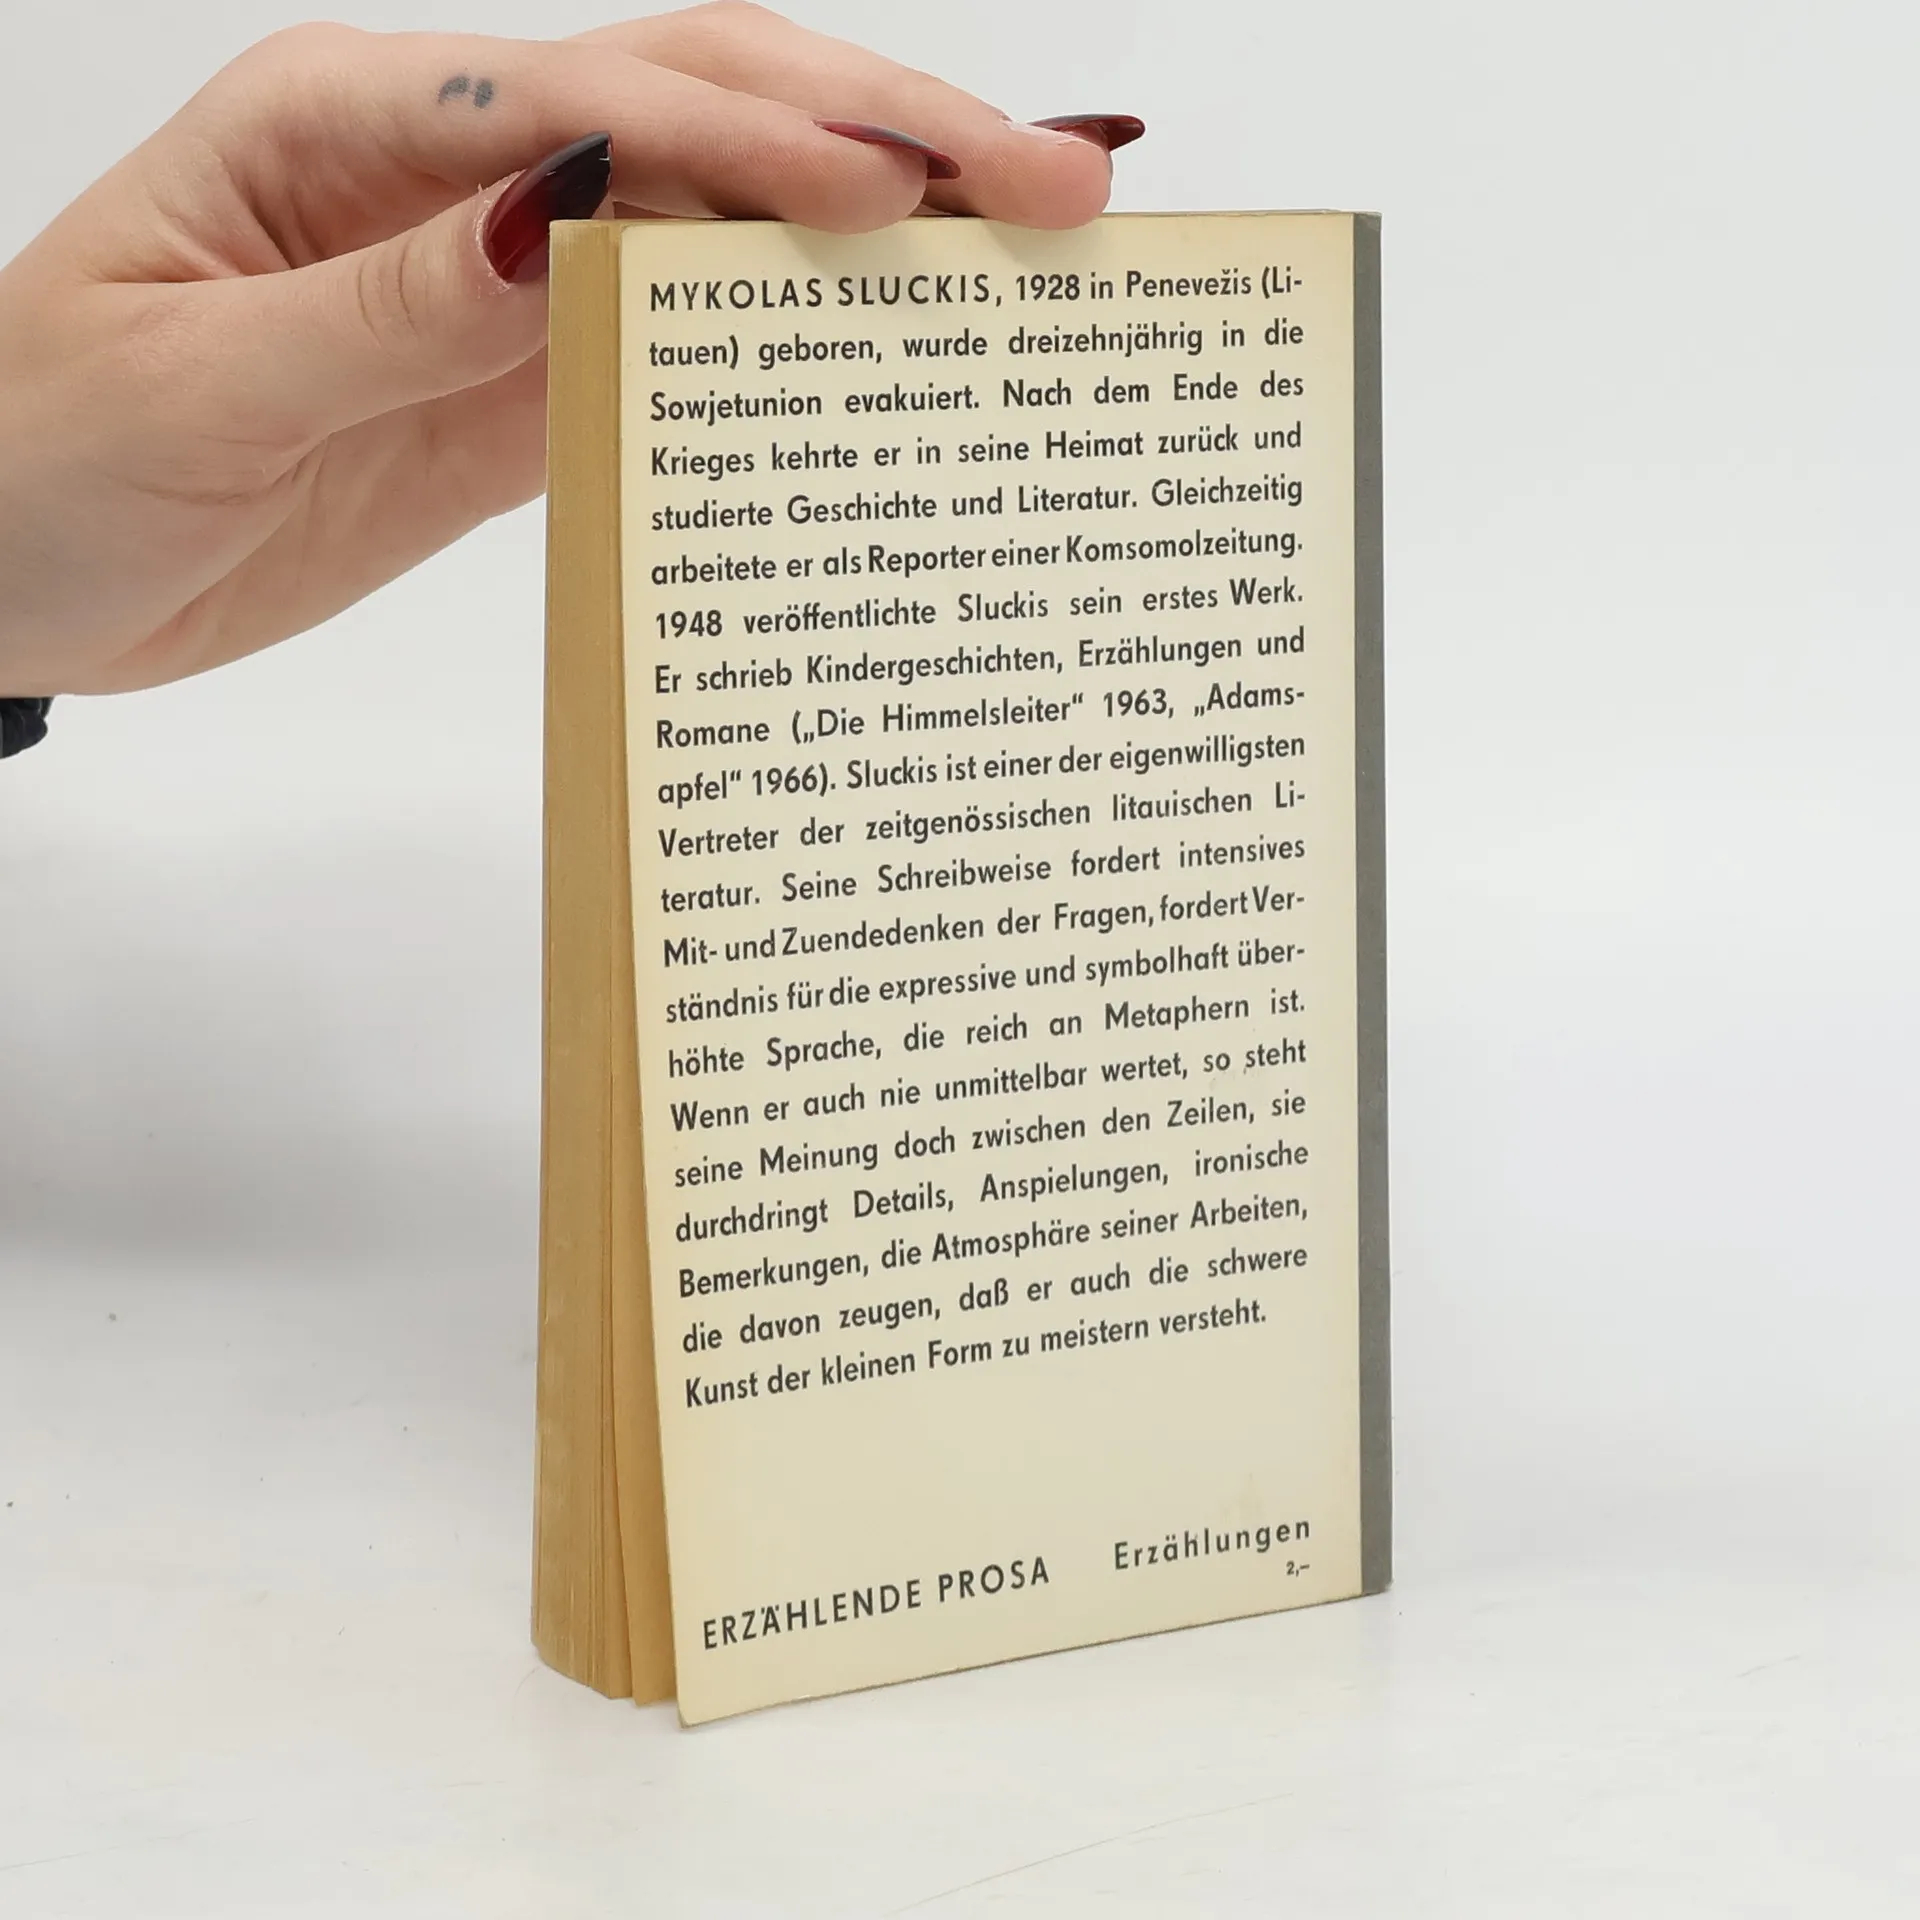 MYKOLAS SLUCKIS, 1928 in Penevežis (Li-
tauen) geboren, wurde dreizehnjährig in die
Sowjetunion evakuiert. Nach dem Ende des
Krieges kehrte er in seine Heimat zurück und
studierte Geschichte und Literatur. Gleichzeitig
arbeitete er als Reporter einer Komsomolzeitung.
1948 veröffentlichte Sluckis sein erstes Werk.
Er schrieb Kindergeschichten, Erzählungen und
Romane („Die Himmelsleiter“ 1963, „Adams-
apfel“ 1966). Sluckis ist einer der eigenwilligsten
Vertreter der zeitgenössischen litauischen Li-
teratur. Seine Schreibweise fordert intensives
Mit- und Zuendedenken der Fragen, fordert Ver-
ständnis für die expressive und symbolhaft über-
höhte Sprache, die reich an Metaphern ist.
Wenn er auch nie unmittelbar wertet, so steht
seine Meinung doch zwischen den Zeilen, sie
durchdringt Details, Anspielungen, ironische
Bemerkungen, die Atmosphäre seiner Arbeiten,
die davon zeugen, daß er auch die schwere
Kunst der kleinen Form zu meistern versteht.
ERZÄHLENDE PROSA Erzählungen
2,–